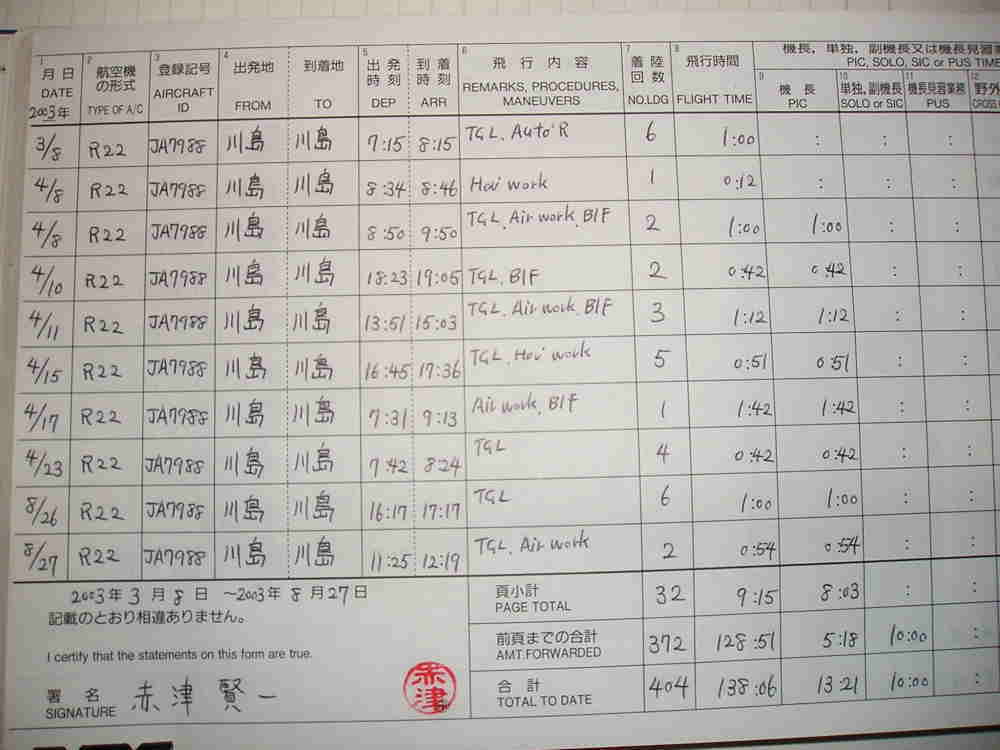 機長, 単独, 副機長又は機長見習業
PIC, SOLO, SIC or PUS TIME
1 月日 DATE 2003年 2 航空機の形式 TYPE OF A/C 3 登録記号 AIRCRAFT ID 4 出発地 FROM 到着地 TO 5 出発時刻 DEP 到着時刻 ARR 6 飛行内容 REMARKS, PROCEDURES, MANEUVERS 7 着陸回数 NO.LDG 8 飛行時間 FLIGHT TIME 9 機長 PIC 10 単独, 副機長 SOLO or SIC 11 機長見習業務 PUS 12 野外 CROSS
3/8 R22 JA7988 川島 川島 7:15 8:15 TGL. Auto'R 6 1:00 : : :
4/8 R22 JA7988 川島 川島 8:34 8:46 Hov work 1 0:12 : : :
4/8 R22 JA7988 川島 川島 8:50 9:50 TGL. Air work. BIF 2 1:00 1:00 : :
4/10 R22 JA7988 川島 川島 18:23 19:05 TGL. BIF 2 0:42 0:42 : :
4/11 R22 JA7988 川島 川島 13:51 15:03 TGL. Air work. BIF 3 1:12 1:12 : :
4/15 R22 JA7988 川島 川島 16:45 17:36 TGL. Hov work 5 0:51 0:51 : :
4/17 R22 JA7988 川島 川島 7:31 9:13 Air work. BIF 1 1:42 1:42 : :
4/23 R22 JA7988 川島 川島 7:42 8:24 TGL 4 0:42 0:42 : :
8/26 R22 JA7988 川島 川島 16:17 17:17 TGL 6 1:00 1:00 : :
8/27 R22 JA7988 川島 川島 11:25 12:19 TGL. Air work 2 0:54 0:54 : :
2003年3月8日 ～2003年8月27日
記載のとおり相違ありません。
I certify that the statements on this form are true.
署名 SIGNATURE 赤津賢一
赤津
頁小計 PAGE TOTAL 32 9:15 8:03 : :
前頁までの合計 AMT.FORWARDED 372 128:51 5:18 10:00 :
合計 TOTAL TO DATE 404 138:06 13:21 10:00 :